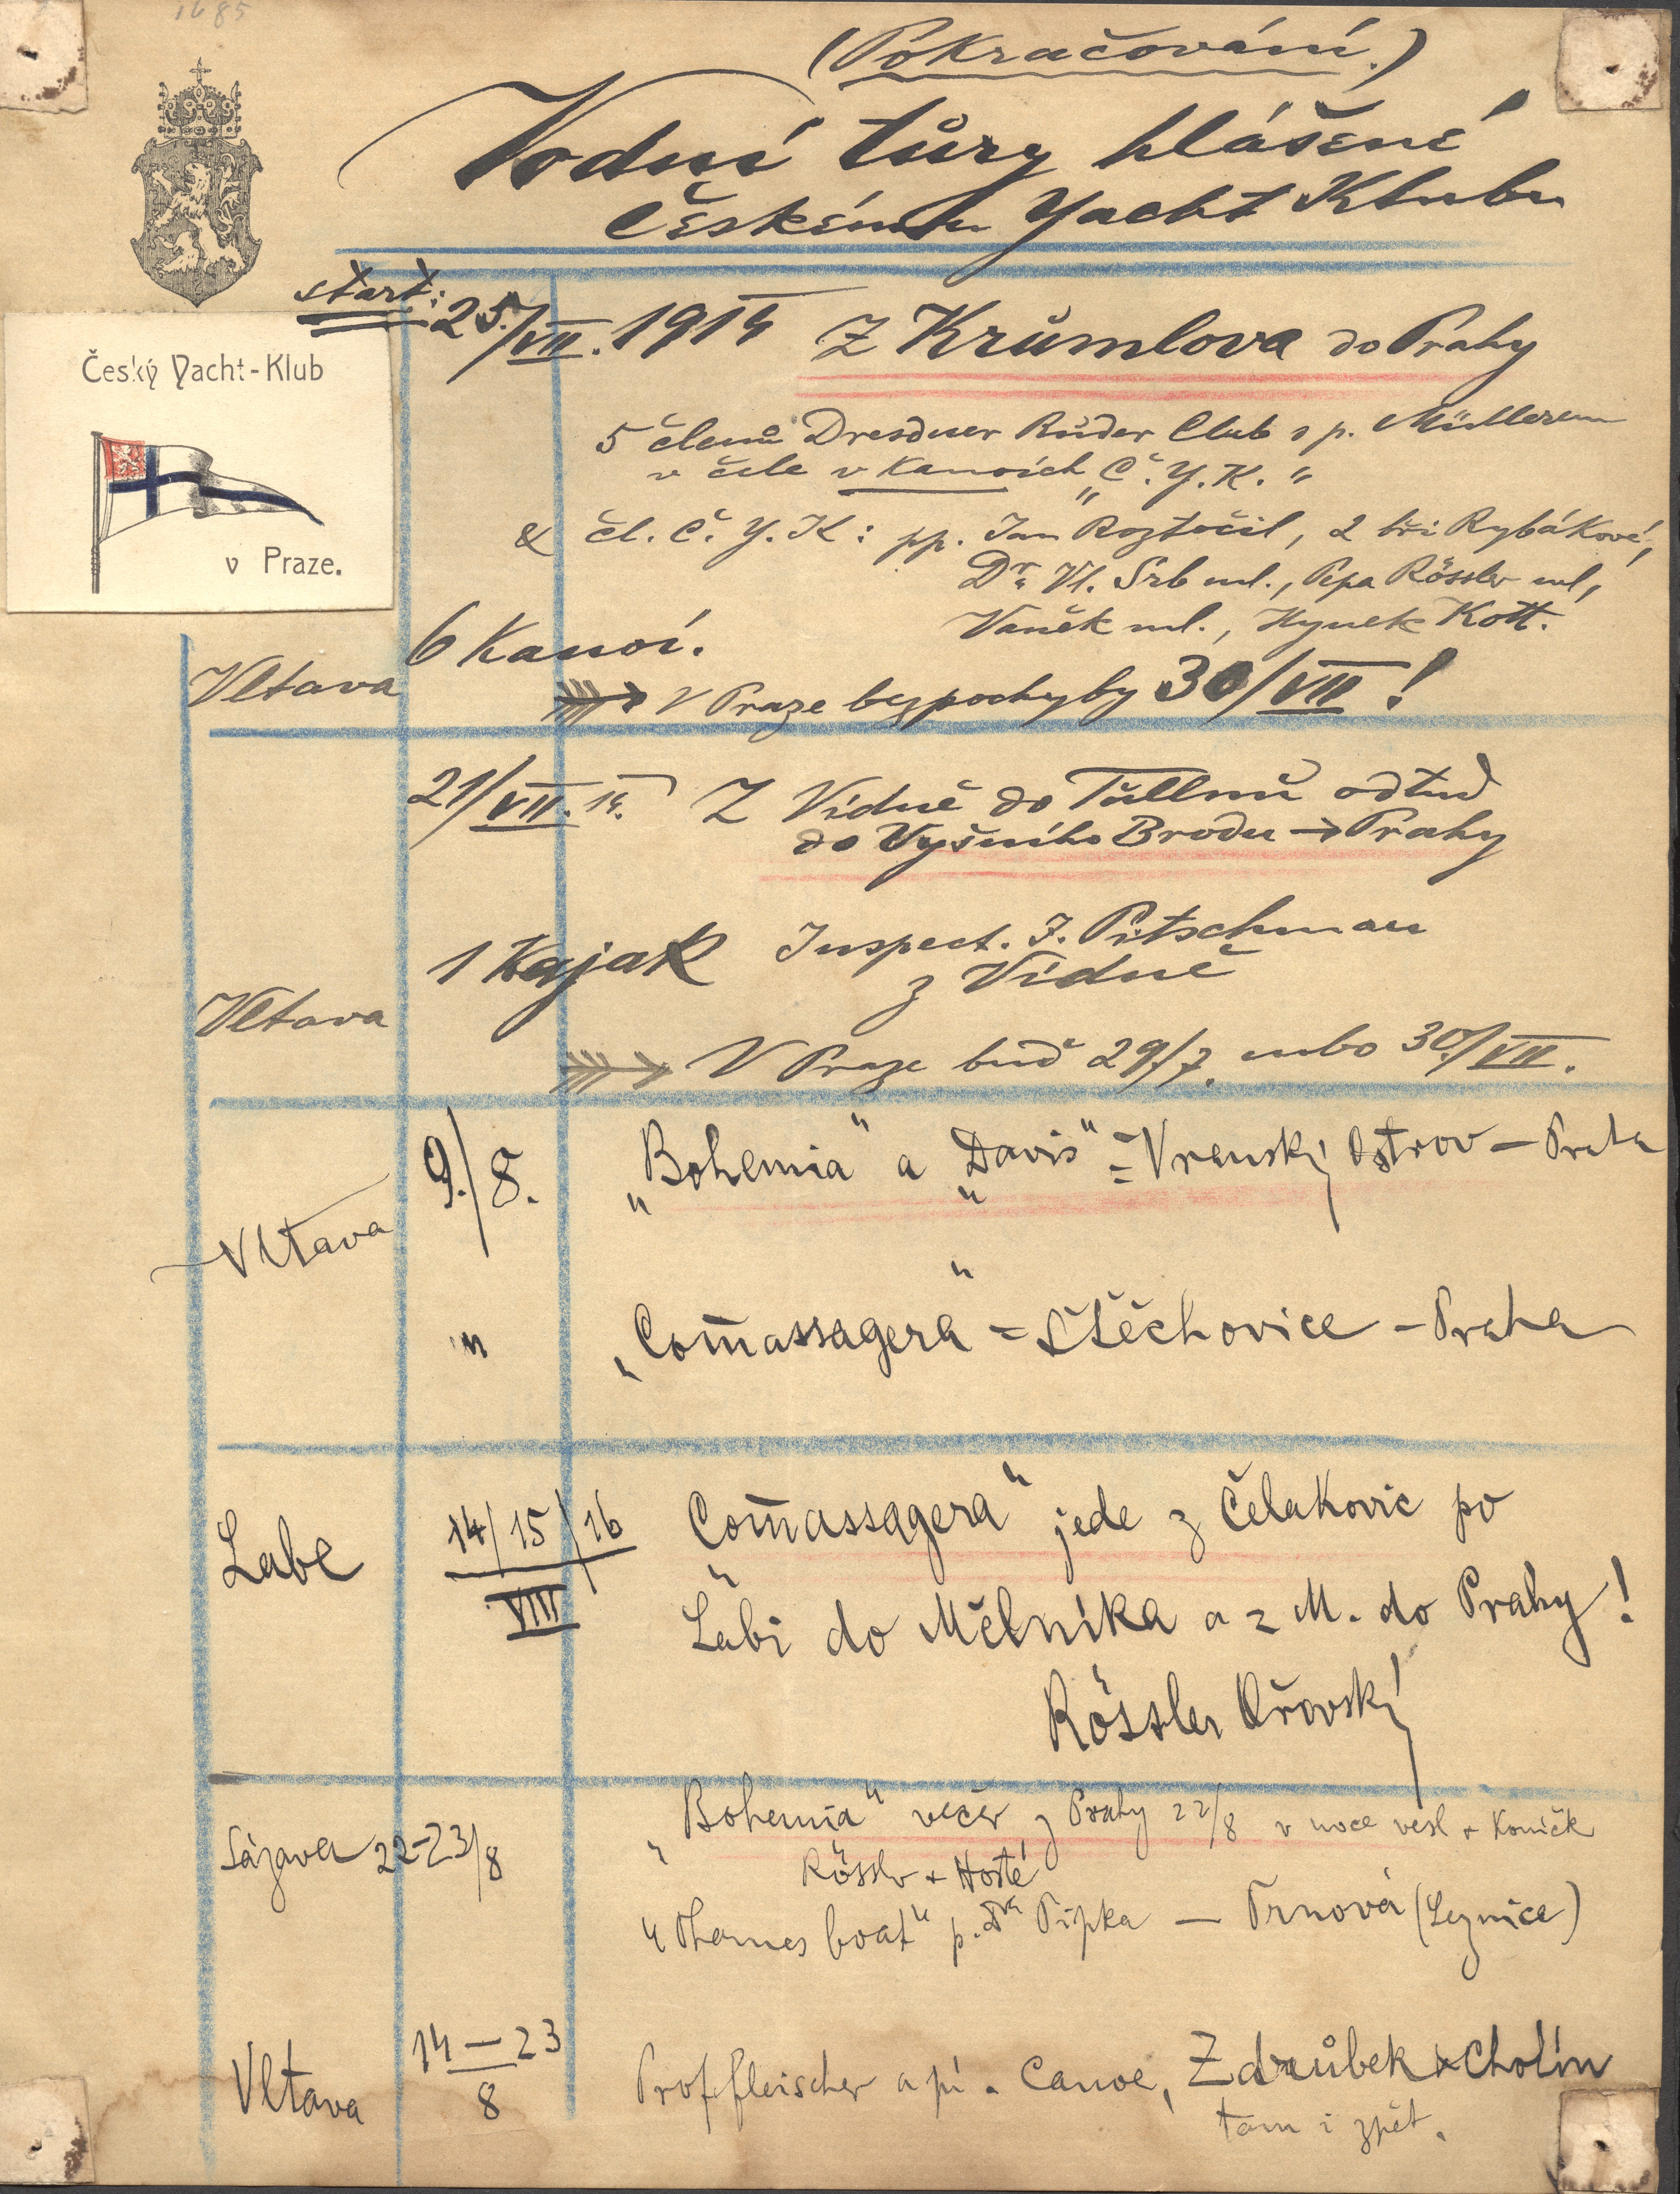 1685
(Pokračování.)
Vodní túry hlášené
Českému Yacht Klubu
start:
Český Yacht-Klub
v Praze.
25./VII. 1914 Z Krůmlova do Prahy
5 členů Dresdner Ruder Club s p. Müllerem
v čele v kanoích „Č. Y. K."
& čl. Č. Y. K: pp. Jan Roztočil, 2 bři Rybákové,
Dr. Vl. Srb ml., Pepa Rössler ml,
Vaněk ml., Hynek Kott.
6 Kanoí.
Vltava
V Praze bezpochyby 30/VII!
21/VII. 14. Z Vídně do Tullnů odtud
do Vyšního Brodu → Prahy
1 Kajak Inspect. J. Pitschman
z Vídně
Vltava
V Praze buď 29/7. nebo 30/VII.
9./8. „Bohemia" a „Davis" = Vranský Ostrov – Praha
Vltava
" „Com̄assagera" = Štěchovice – Praha
Labe 14/15/16 „Com̄assagera" jede z Čelakovic po
VIII
Labi do Mělníka a z M. do Prahy!
Rössler Ořovský
Sázava 22–23/8 „Bohemia" večer z Prahy 22/8 v noce vesl + Koníček
Rössler + Hosté
„Thames boat" p. Dr Pipka — Trnová (Leznice)
Vltava 14–23
8
Prof fleischer a pí. Canoe, Zdrůbek & Cholín
tam i zpět.